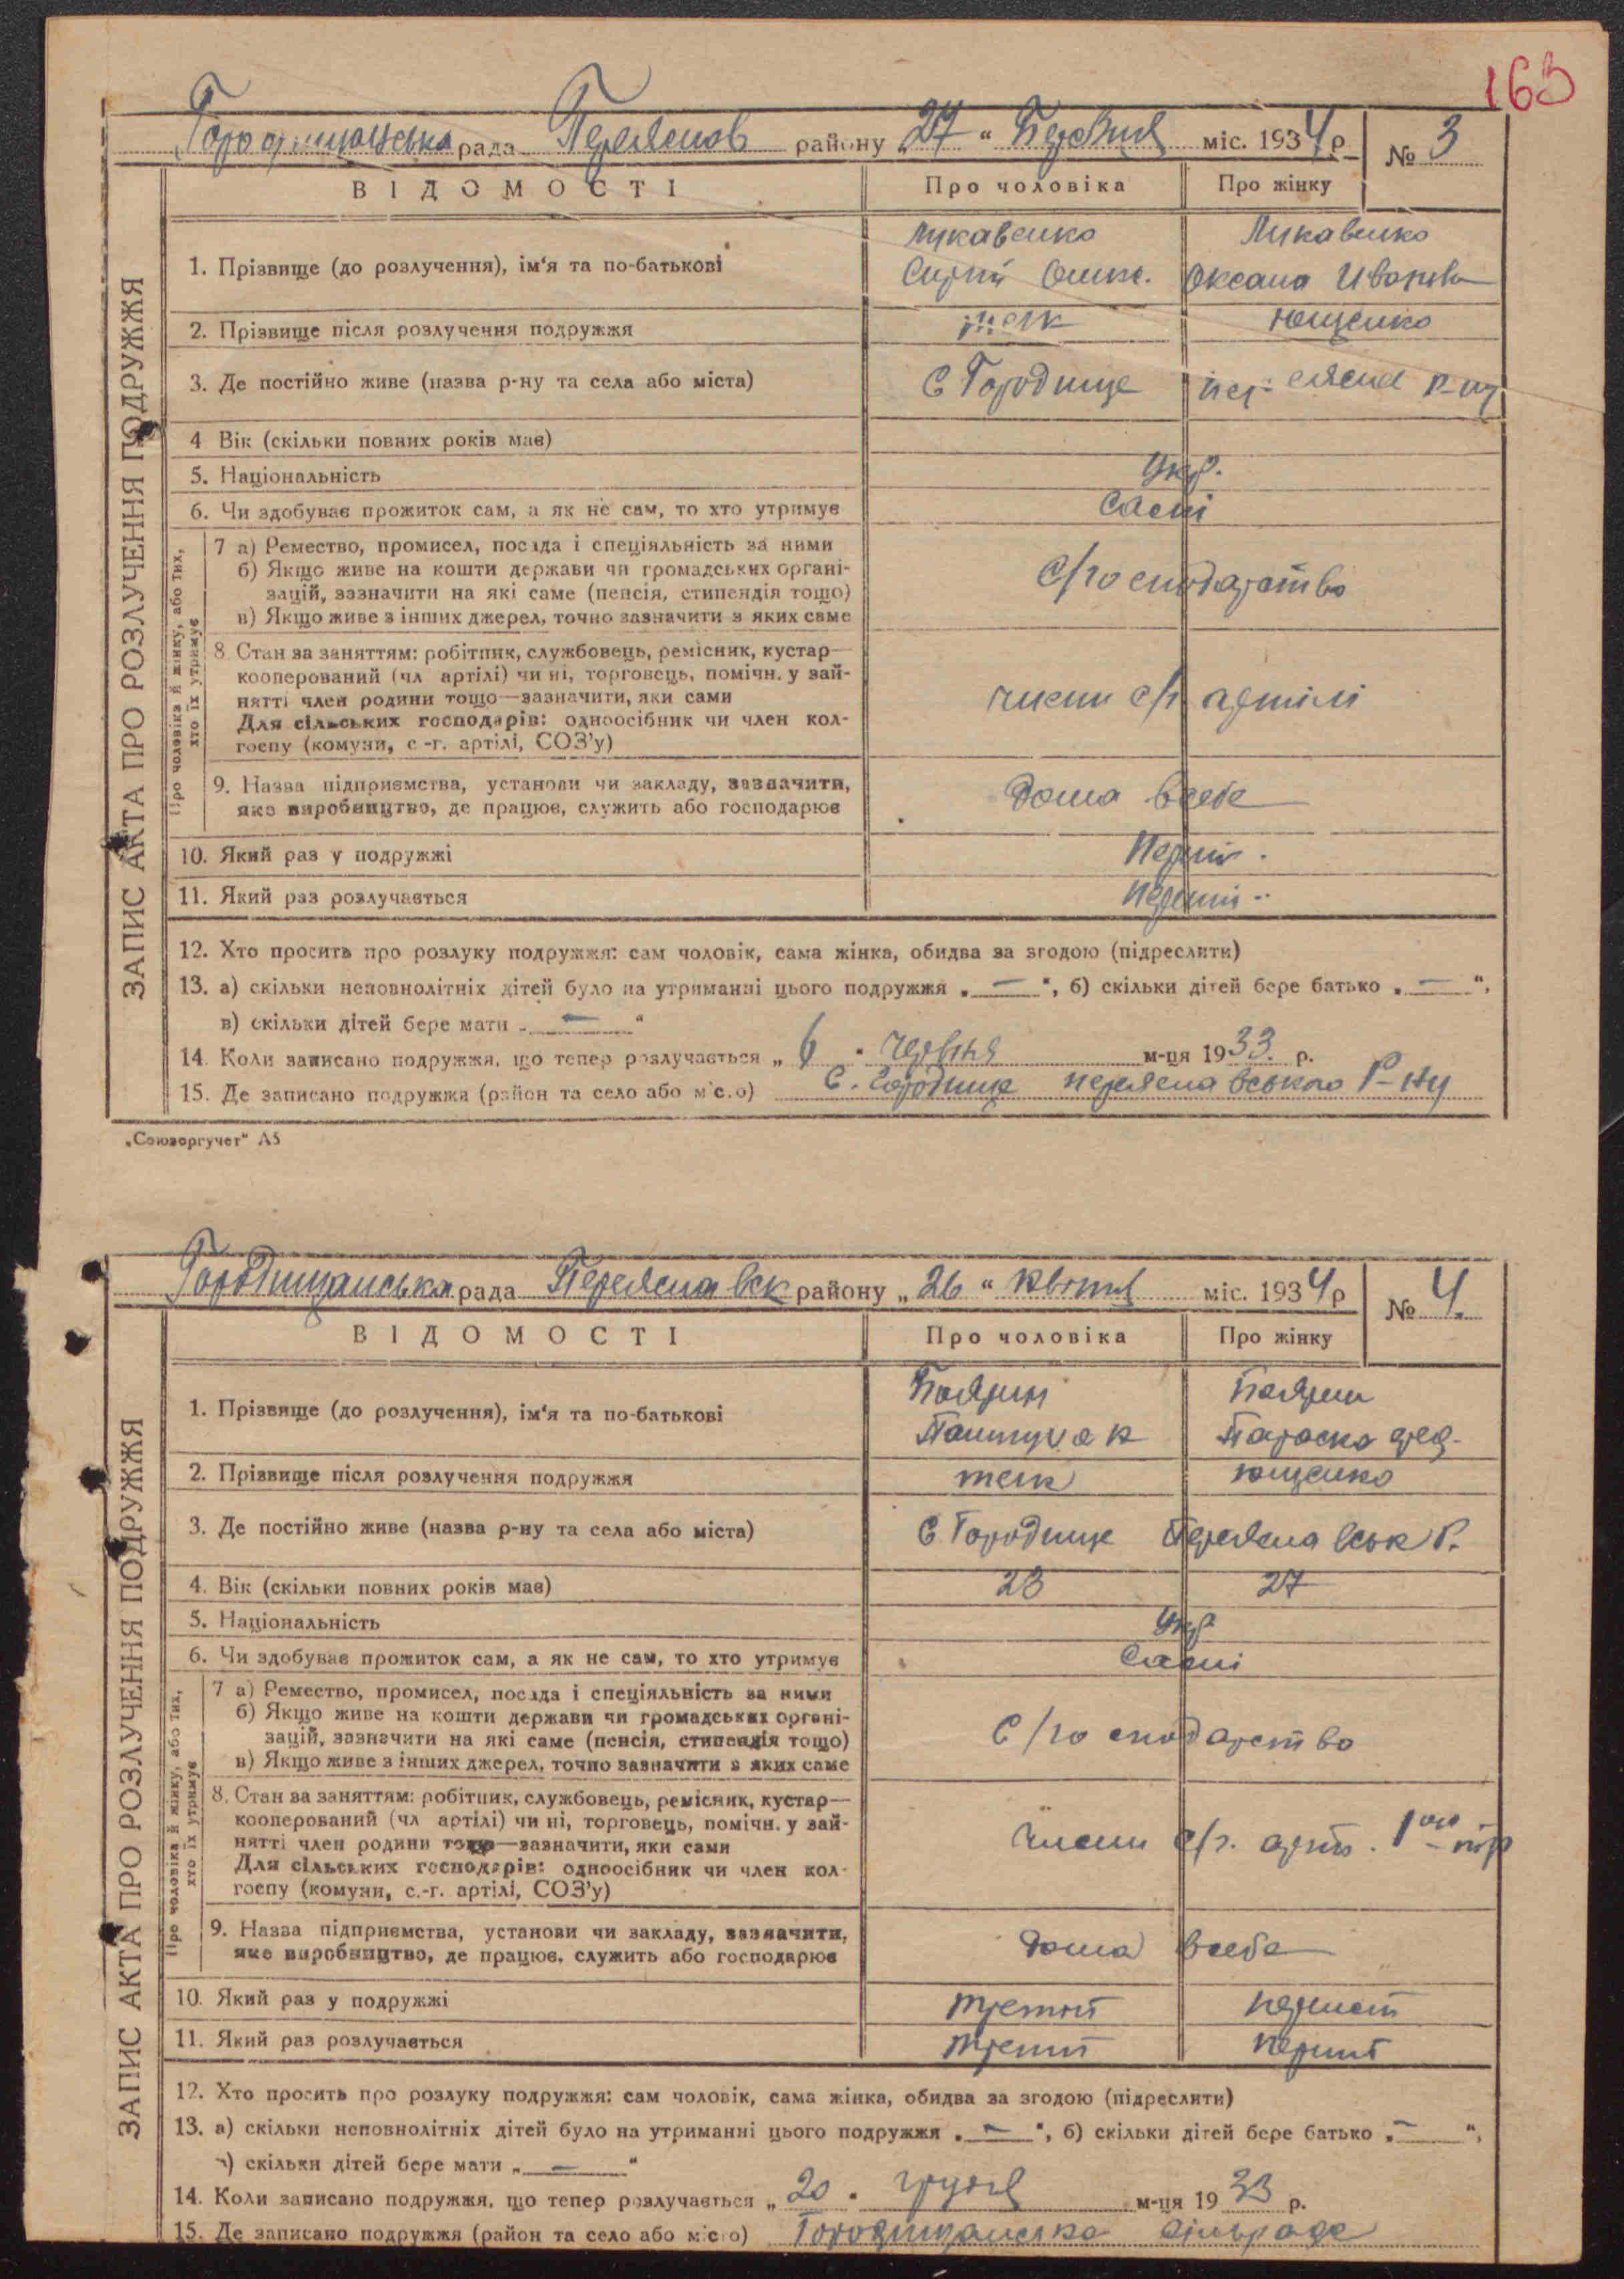 163
Городищанська рада Переяслов району „27“ Березня міс. 1934 р № 3
ЗАПИС АКТА ПРО РОЗЛУЧЕННЯ ПОДРУЖЖЯ
ВІДОМОСТІ Про чоловіка Про жінку
1. Прізвище (до розлучення), ім'я та по-батькові
Лукавенко Лукавенко
Сергій Оксана Ивановна
2. Прізвище після розлучення подружжя Ющенко
3. Де постійно живе (назва р-ну та села або міста) С Городище р-ну
4 Вік (скільки повних років має)
5. Національність Укр.
6. Чи здобуває прожиток сам, а як не сам, то хто утримує Самі
Про чоловіка й жінку, або тих, хто їх утримує
7 а) Ремество, промисел, посада і спеціяльність за ними
б) Якщо живе на кошти держави чи громадських органі-
зацій, зазначити на які саме (пенсія, стипендія тощо)
в) Якщо живе з інших джерел, точно зазначити з яких саме
С/господарство
8. Стан за заняттям: робітник, службовець, ремісник, кустар—
кооперований (чл артілі) чи ні, торговець, помічн. у зай-
нятті член родини тощо—зазначити, яки сами
Для сільських господарів: одноосібник чи член кол-
госпу (комуни, с.-г. артілі, СОЗ'у)
члени с/г артілі
9. Назва підприємства, установи чи закладу, зазначити,
яке виробництво, де працює, служить або господарює
Дома в себе
10. Який раз у подружжі Перший
11. Який раз розлучається Перший
12. Хто просить про розлуку подружжя: сам чоловік, сама жінка, обидва за згодою (підреслити)
13. а) скільки неповнолітніх дітей було на утриманні цього подружжя „ — “, б) скільки дітей бере батько „ — “,
в) скільки дітей бере мати „ — “
14. Коли записано подружжя, що тепер розлучається „ 6 “ червня м-ця 1933. р.
15. Де записано подружжя (район та село або місто) С. Городище переяславського Р-ну
„Союзоргучет“ А5
Городищанська рада Переяславск району „26“ Квітня міс. 1934 р № 4.
ЗАПИС АКТА ПРО РОЗЛУЧЕННЯ ПОДРУЖЖЯ
ВІДОМОСТІ Про чоловіка Про жінку
1. Прізвище (до розлучення), ім'я та по-батькові
Боярин Боярин
Параска
2. Прізвище після розлучення подружжя Ющенко
3. Де постійно живе (назва р-ну та села або міста) С Городище Переяславськ Р.
4. Вік (скільки повних років має) 23 27
5. Національність Укр
6. Чи здобуває прожиток сам, а як не сам, то хто утримує Самі
Про чоловіка й жінку, або тих, хто їх утримує
7 а) Ремество, промисел, посада і спеціяльність за ними
б) Якщо живе на кошти держави чи громадських органі-
зацій, зазначити на які саме (пенсія, стипендія тощо)
в) Якщо живе з інших джерел, точно зазначити з яких саме
С/господарство
8. Стан за заняттям: робітник, службовець, ремісник, кустар—
кооперований (чл артілі) чи ні, торговець, помічн. у зай-
нятті член родини тощо—зазначити, яки сами
Для сільських господарів: одноосібник чи член кол-
госпу (комуни, с.-г. артілі, СОЗ'у)
Члени с/г. арт.
9. Назва підприємства, установи чи закладу, зазначити,
яке виробництво, де працює, служить або господарює
Дома в себе
10. Який раз у подружжі третій
11. Який раз розлучається третій перший
12. Хто просить про розлуку подружжя: сам чоловік, сама жінка, обидва за згодою (підреслити)
13. а) скільки неповнолітніх дітей було на утриманні цього подружжя „ — “, б) скільки дітей бере батько „ — “,
в) скільки дітей бере мати „ — “
14. Коли записано подружжя, що тепер розлучається „ 20 “ грудня м-ця 1933 р.
15. Де записано подружжя (район та село або місто) Городищанська сільрада